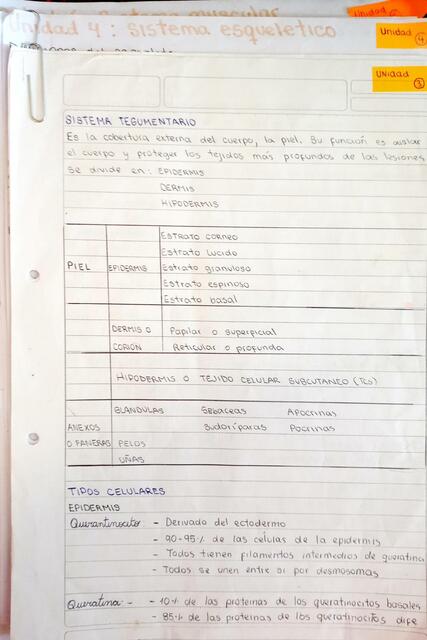 Unidad 4: Sistema esqueletico
Unidad 4
Unidad 3
SISTEMA TEGUMENTARIO
Es la cobertura externa del cuerpo, la piel. Su función es aislar
el cuerpo y proteger los tejidos más profundos de las lesiones
se divide en: EPIDERMIS
DERMIS
HIPODERMIS
Estrato corneo
Estrato lucido
PIEL EPIDERMIS Estrato granuloso
Estrato espinoso
Estrato basal
DERMIS O Papilar o superficial
CORION Reticular o profunda
HIPODERMIS O TEJIDO CELULAR SUBCUTANEO (TCS)
GLANDULAS Sebaceas Apocrinas
ANEXOS Sudoríparas Pocrinas
O FANERAS PELOS
UÑAS
TIPOS CELULARES
EPIDERMIS
Querantinocito - Derivado del ectodermo
- 90-95% de las células de la epidermis
- Todos tienen filamentos intermedios de queratina
- Todos se unen entre si por desmosomas
Queratina - - 10% de las proteinas de los queratinocitos basales
- 85% de las proteinas de los queratinocitos dife